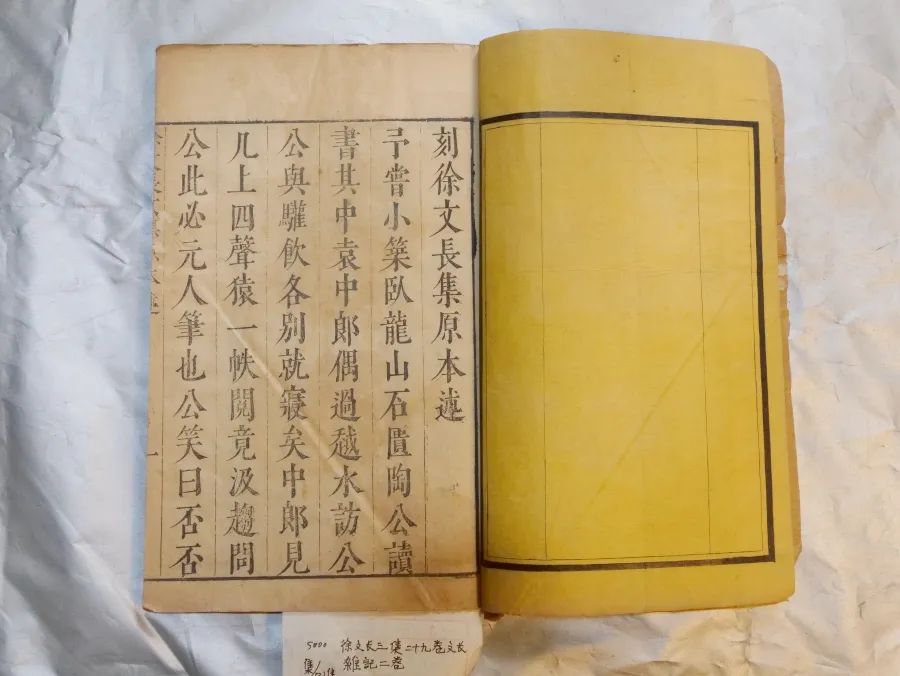 刻徐文長集原本述
予嘗小築臥龍山石匱陶公讀
書其中袁中郎偶過越水訪公
公與驩飲各別就寢矣中郎見
几上四聲猿一帙閱竟汲趨問
公此必元人筆也公笑曰否否
一
5000 徐文长三集二十九卷文长
雜記二卷